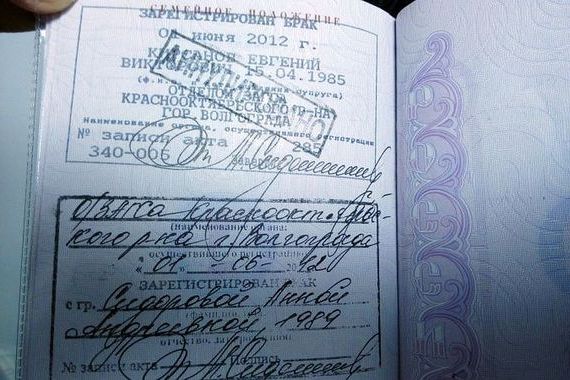 СЕМЕЙНОЕ ПОЛОЖЕНИЕ
ЗАРЕГИСТРИРОВАН БРАК
01 июня 2012 г.
ЕВГЕНИЙ
15.04.1985
ОТДЕЛОМ
КРАСНООКТЯБРЬСКОГО Р-НА
ГОР. ВОЛГОГРАДА
Наименование органа, осуществившего регистрации
№ записи акта 285
340-006
О/ЗАГСа Краснооктябрьс-
кого р-на г. Волгограда
(наименование органа,
осуществившего регистрацию)
"01" - 06 - 2012
ЗАРЕГИСТРИРОВАН БРАК
с гр. Сидоровой Анной
Андреевной, 1989
отчество, дата рождения)
№ записи акта Подпись